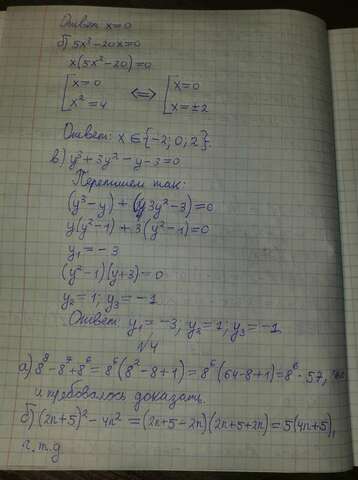 Ответ: x=0
б) 5x³-20x=0
x(5x²-20)=0
[x=0 [x=0
x²=4 <=> x=±2
Ответ: x∈{-2; 0; 2}.
в) y³+3y²-y-3=0
Перепишем так:
(y³-y)+(3y²-3)=0
y(y²-1)+3(y²-1)=0
y₁=-3
(y²-1)(y+3)=0
y₂=1; y₃=-1
Ответ: y₁=-3, y₂=1; y₃=-1
№4
а) 8⁸-8⁷+8⁶=8⁶(8²-8+1)=8⁶(64-8+1)=8⁶·57,
и требовалось доказать.
б) (2n+5)²-4n²=(2n+5-2n)(2n+5+2n)=5(4n+5),
ч.т.д